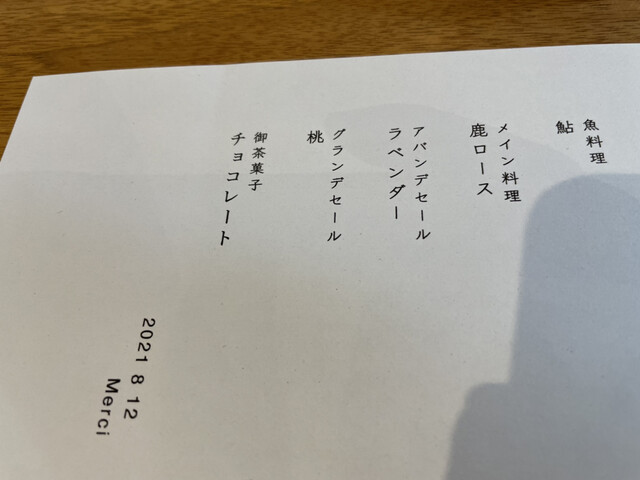 魚料理
鮎
メイン料理
鹿ロース
アバンデセール
ラベンダー
グランデセール
桃
御茶菓子
チョコレート
2021 8 12
Merci